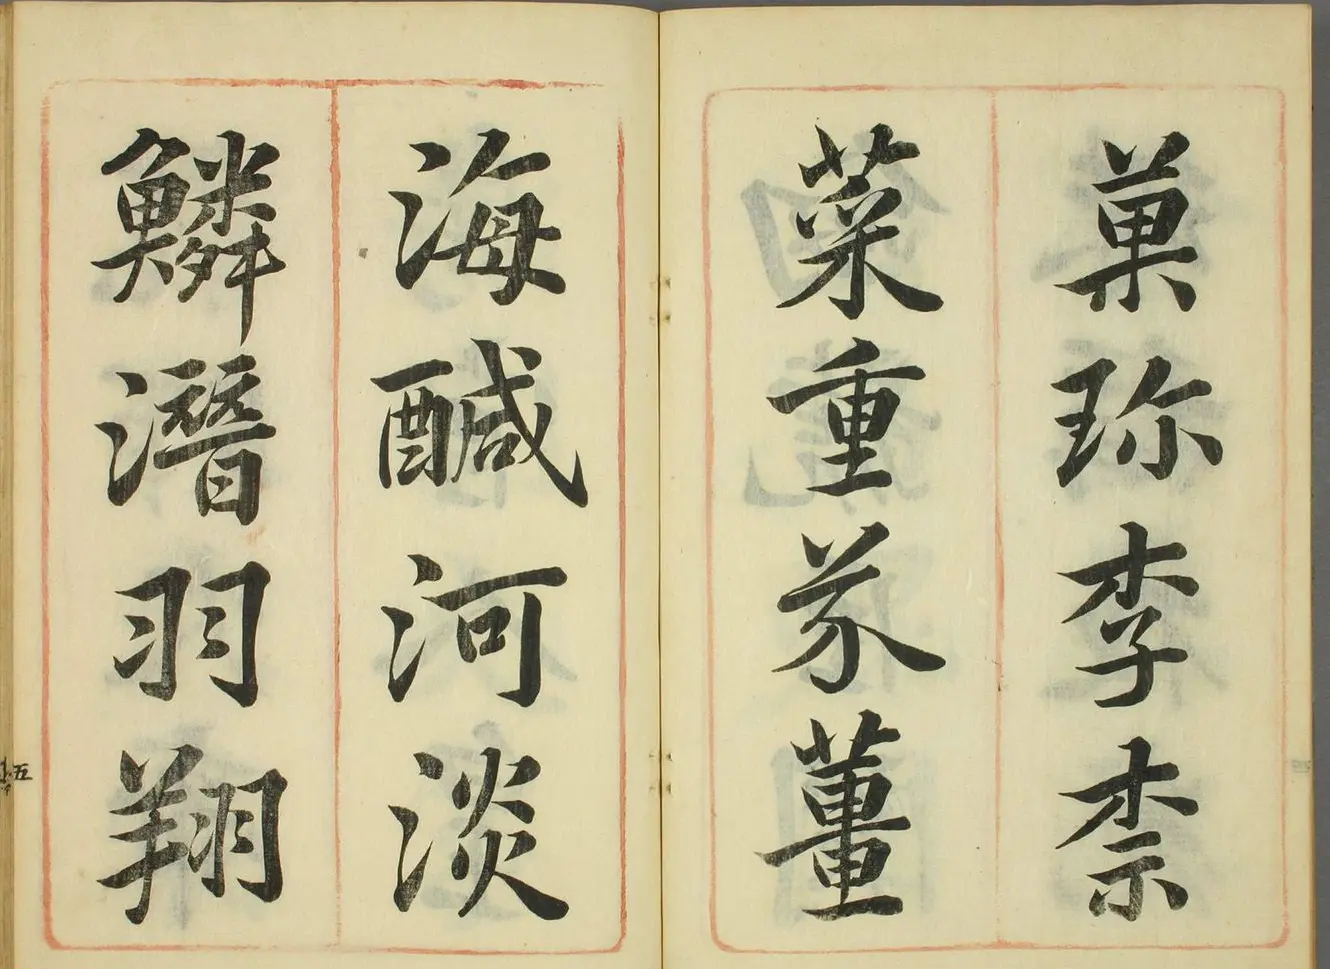 菓珎李柰
菜重芥薑
海醎河淡
鱗潛羽翔
五